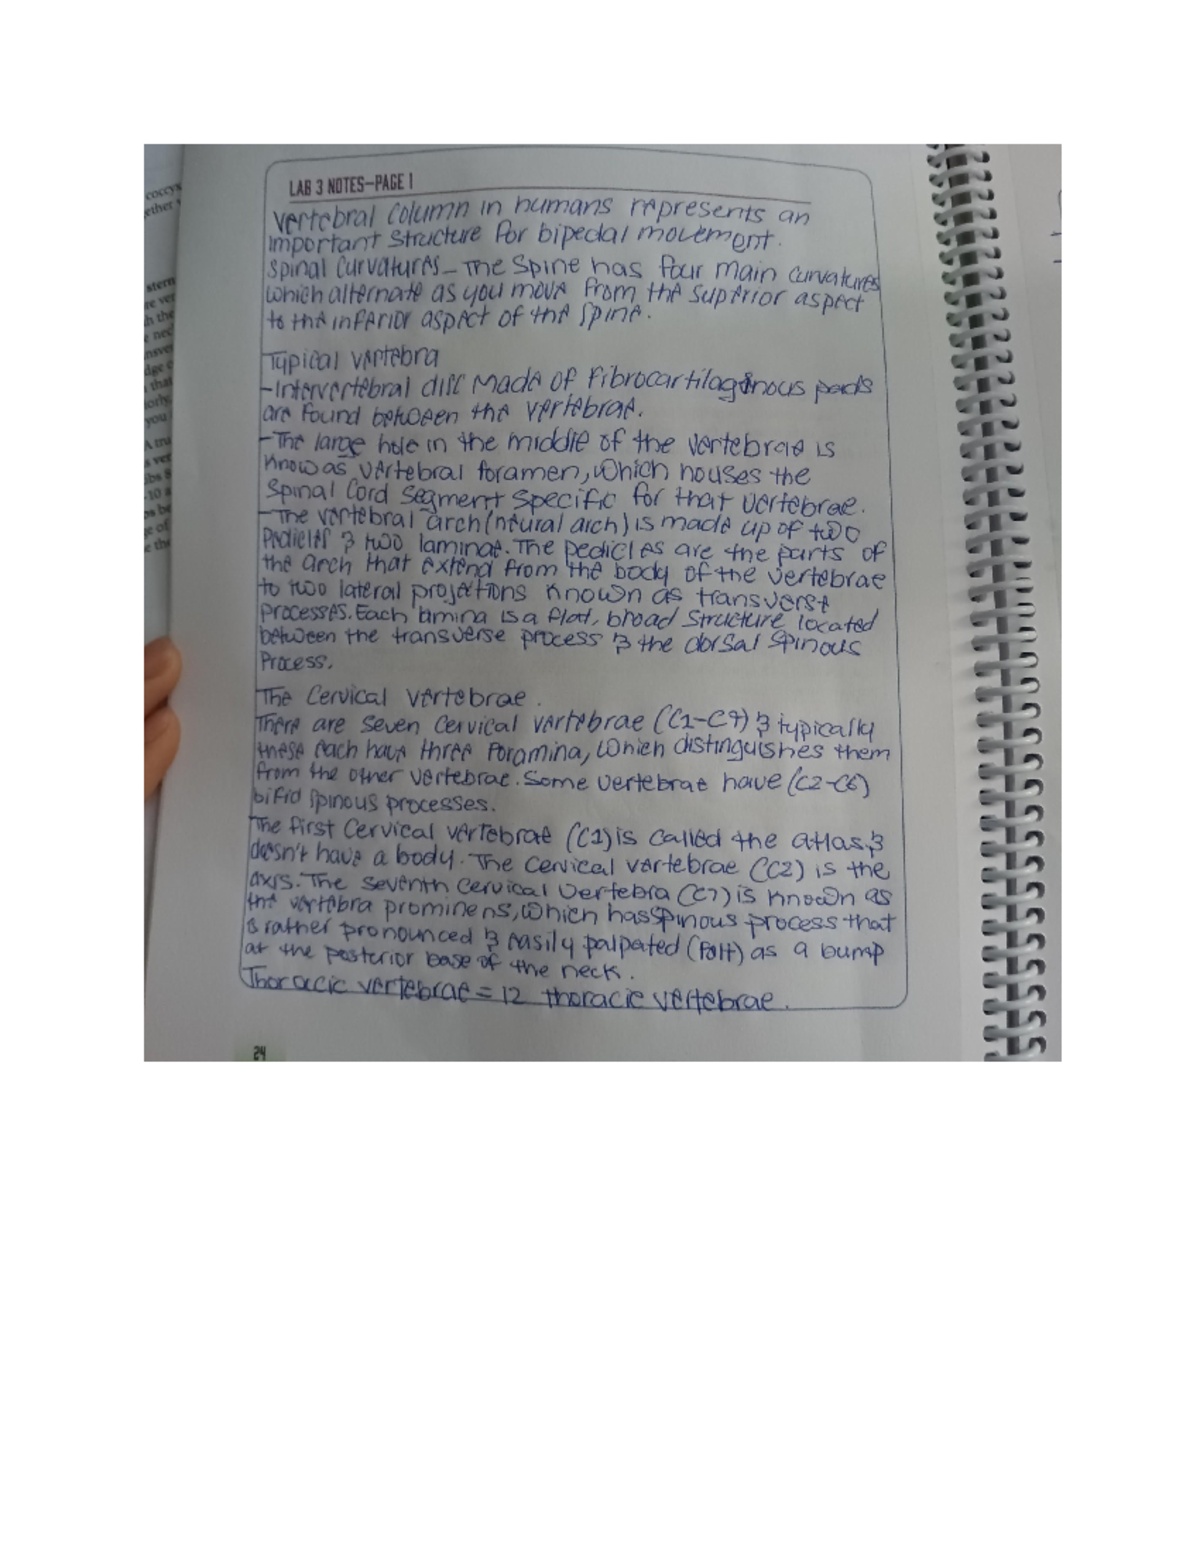 LAB 3 NOTES—PAGE 1
Vertebral Column in humans represents an
important structure for bipedal movement.
Spinal Curvatures - The Spine has four main curvatures
which alternate as you move from the superior aspect
to the inferior aspect of the spine.
Typical vertebra
-Intervertebral disc made of Fibrocartilagenous pads
are found between the vertebrae.
-The large hole in the middle of the vertebrae is
Know as vertebral foramen, which houses the
Spinal Cord segment specific for that vertebrae.
-The vertebral arch (neural arch) is made up of two
Pedicles & two laminae. The pedicles are the parts of
the arch that extend from the body of the vertebrae
to two lateral projections known as transverse
processes. Each lamina is a flat, broad structure located
between the transverse process & the dorsal spinous
Process.
The Cervical vertebrae.
There are seven cervical vertebrae (C1-C7) & typically
these each have three foramina, which distinguishes them
from the other vertebrae. Some vertebrae have (C2-C6)
bifid spinous processes.
The first Cervical vertebrae (C1) is called the atlas &
doesn't have a body. The Cervical vertebrae (C2) is the
axis. The seventh cervical vertebra (C7) is known as
the vertebra prominens, which has spinous process that
is rather pronounced & easily palpated (felt) as a bump
at the posterior base of the neck.
Thoraccic vertebrae = 12 thoracic vertebrae.
24
coccyx
stem